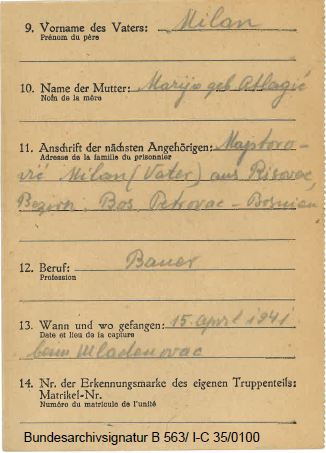 9. Vorname des Vaters: Milan
Prénom du père
10. Name der Mutter: Marija geb Atlagić
Nom de la mère
11. Anschrift der nächsten Angehörigen: Majstoro-
Adresse de la famille du prisonnier
vić Milan (Vater) aus Risovac,
Bezirk. Bos. Petrovac - Bosnien
12. Beruf: Bauer
Profession
13. Wann und wo gefangen: 15. April 1941
Date et lieu de la capture
beim Mladenovac
14. Nr. der Erkennungsmarke des eigenen Truppenteils:
Matrikel-Nr.
Numéro du matricule de l'unité
Bundesarchivsignatur B 563/ I-C 35/0100